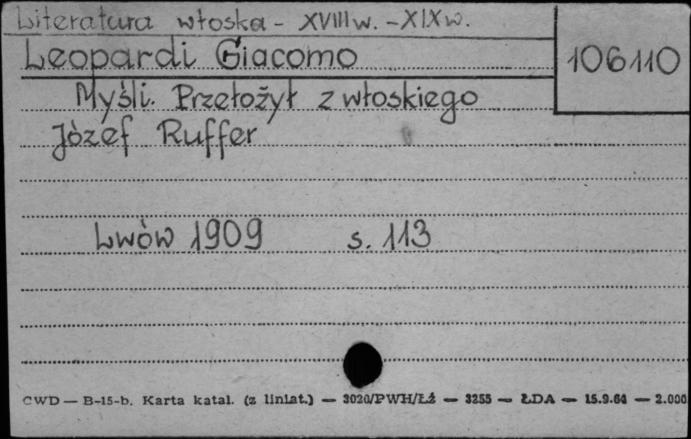 Literatura włoska - XVIII w. - XIX w.
Leopardi Giacomo
106110
Myśli. Przełożył z włoskiego
Józef Ruffer
Lwów 1909 s. 113
CWD — B-15-b. Karta katal. (z liniat.) — 3020/PWH/Łź — 3255 — ŁDA — 15.9.64 — 2.000